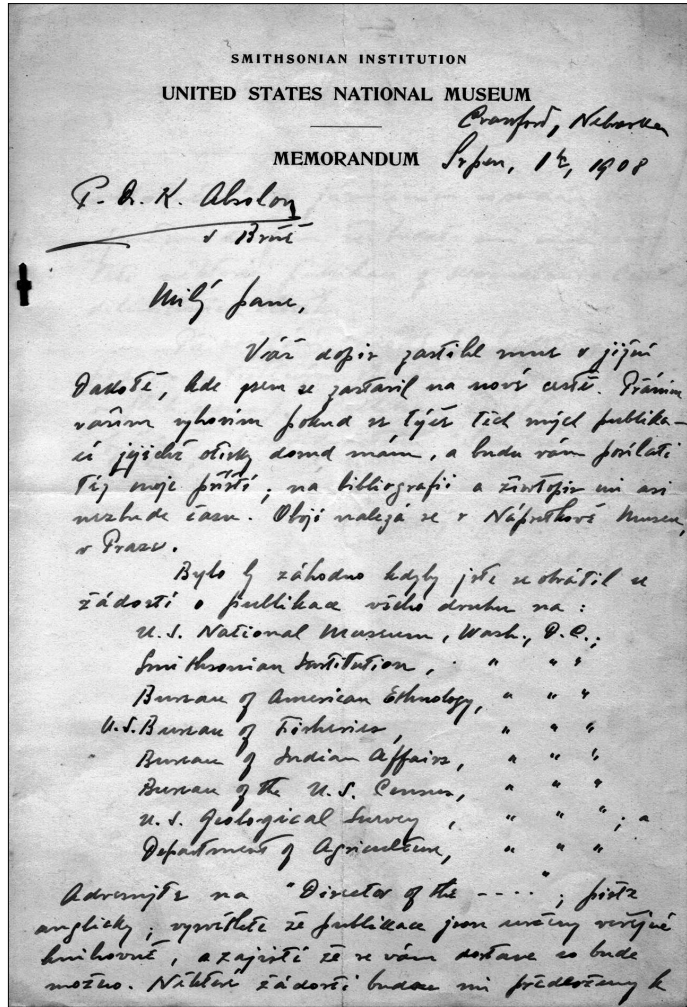 SMITHSONIAN INSTITUTION
UNITED STATES NATIONAL MUSEUM
Crawford, Nebraska
MEMORANDUM Srpen, 1., 1908
P. Dr. K. Absolon
v Brně
Milý pane,
Váš dopis zastihl mne v jižní
Dakotě, kde jsem se zastavil na nové cestě. Přáním
vašim vyhovím pokud se týče těch mých publika-
cí jejichž otisky doma mám, a budu vám posílati
též moje příští; na bibliografii a životopis mi asi
nezbude času. Obojí nalezá se v Náprstkově Museu,
v Praze.
Bylo by záhodno kdyby jste se obrátil se
žádostí o publikace všeho druhu na:
U.S. National Museum, Wash., D.C.;
Smithsonian Institution, " " "
Bureau of American Ethnology, " " "
U.S. Bureau of Fisheries, " " "
Bureau of Indian Affairs, " " "
Bureau of the U.S. Census, " " "
U.S. Geological Survey, " " "; a
Department of Agriculture, " " "
Adresujte na "Director of the ----"; pište
anglicky; vysvětlete že publikace jsou určeny veřejné
knihovně, a zajisté že se vám dostane co bude
možno. Některé žádosti budou mi předloženy k